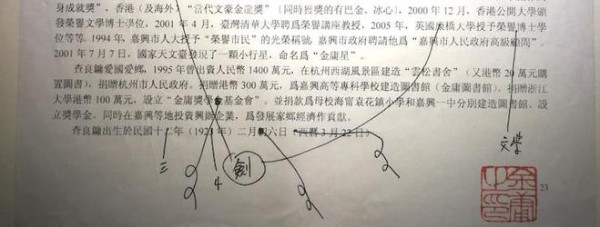 身成就獎"、香港（及海外）"當代文豪金龍獎"（同時授獎的有巴金、冰心），2000 年 12 月，香港公開大學頒
發榮譽文學博士學位，2001 年 4 月，臺灣清華大學聘爲榮譽講座教授，2005 年，英國劍橋大學授予榮譽博士學
位等等。1994 年，嘉興市人大授予"榮譽市民"的光榮稱號，嘉興市政府聘請他爲"嘉興市人民政府高級顧問"。
2001 年 7 月 7 日，國家天文臺發現了一顆小行星，命名爲"金庸星"。
查良鏞愛國愛鄉，1995 年曾出資人民幣 1400 萬元，在杭州西湖風景區建造"雲松書舍"（又港幣 20 萬元購
置圖書），捐贈杭州市人民政府。捐贈港幣 300 萬元，爲嘉興高等專科學校建造圖書館（金庸圖書館）。捐贈浙江
大學港幣 100 萬元，設立"金庸獎學金基金會"。並捐款爲母校海甯袁花鎮小學和嘉興一中分別建造圖書館、設
立獎學金。同時在嘉興等地投資興辦企業，爲發展家鄉經濟作貢獻。
查良鏞出生於民國十二年（1923 年）二月初六日（西曆 3 月 22 日）
三
4
劍
文學
23
金庸
之印